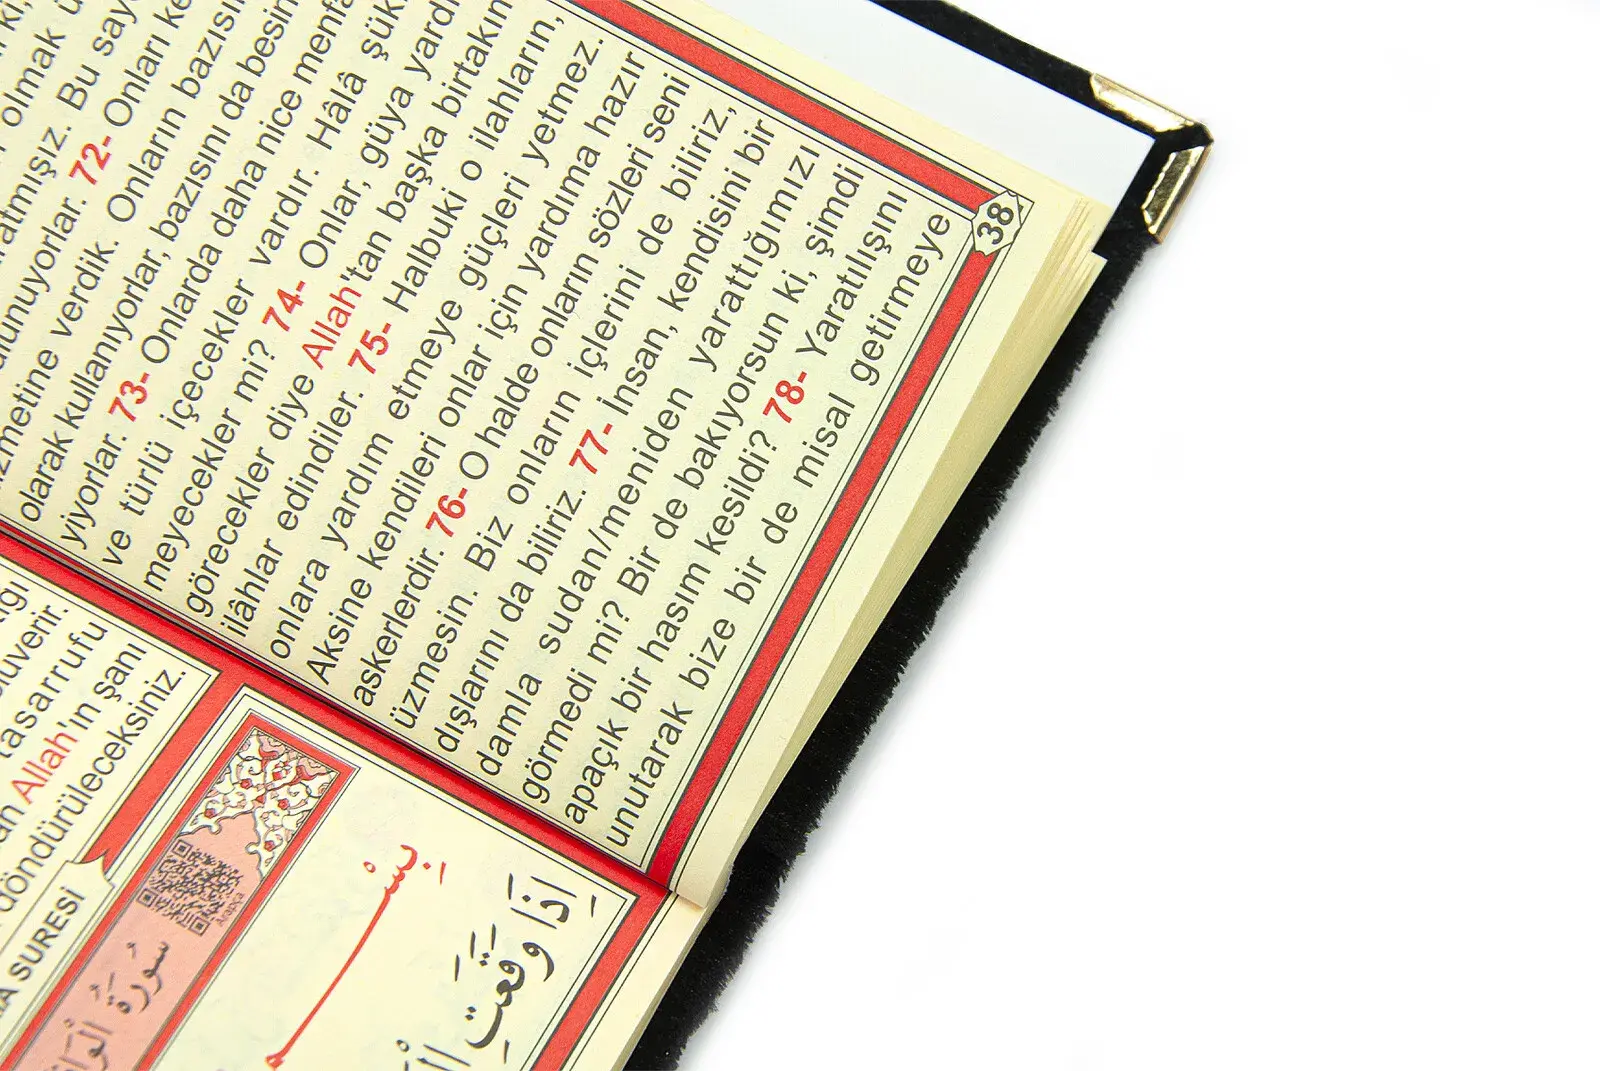 olmak
Bu
72- Onları
verdik. Onların
olarak kullanıyorlar, bazısını da besin
yiyorlar. 73- Onlarda daha nice menfa
ve türlü içecekler vardır. Hâlâ şük
meyecekler mi? 74- Onlar, güya yardı
görecekler diye Allah'tan başka birtakım
ilâhlar edindiler. 75- Halbuki o ilahların,
onlara yardım etmeye güçleri yetmez.
Aksine kendileri onlar için yardıma hazır
askerlerdir. 76- O halde onların sözleri seni
üzmesin. Biz onların içlerini de biliriz,
dışlarını da biliriz. 77- İnsan, kendisini bir
damla sudan/meniden yarattığımızı
görmedi mi? Bir de bakıyorsun ki, şimdi
apaçık bir hasım kesildi? 78- Yaratılışını
unutarak bize bir de misal getirmeye
38
tasarrufu
Allah'ın şanı
döndürüleceksiniz.
SURESİ
سُورَةُ
بِسْمِ
اِذَا وَقَعَتِ